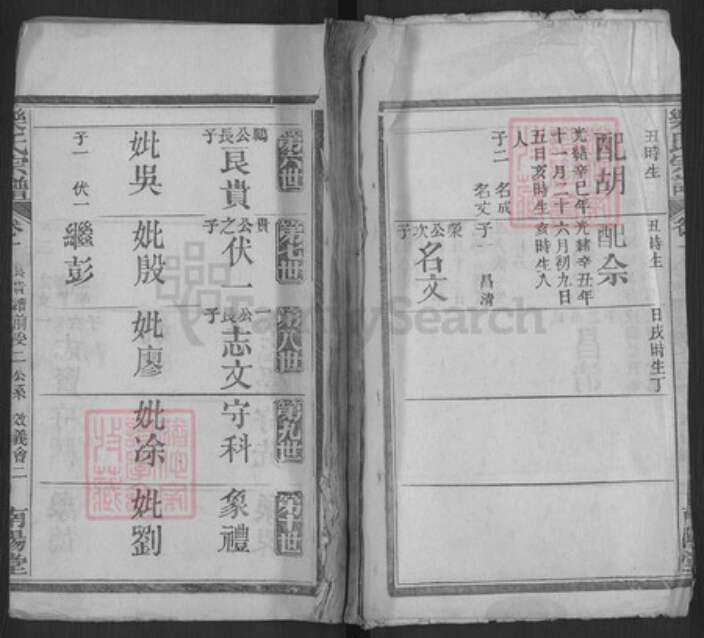 丑時生
丑時生
日戌時生丁
配胡
光緒辛巳年
十一月二十
五日亥時生
人
子二 名成
名文
配佘
光緒辛丑年
六月初九日
亥時生人
榮公次子
名文
子一 昌清
第六世
第七世
第八世
第九世
第十世
鵾公長子
艮貴
貴公之子
伏一
一公長子
志文
守科
象禮
妣吳
妣殷
妣廖
妣凃
妣劉
子一 伏一
繼彭
樂氏宗譜
卷一
南陽堂
FamilySearch